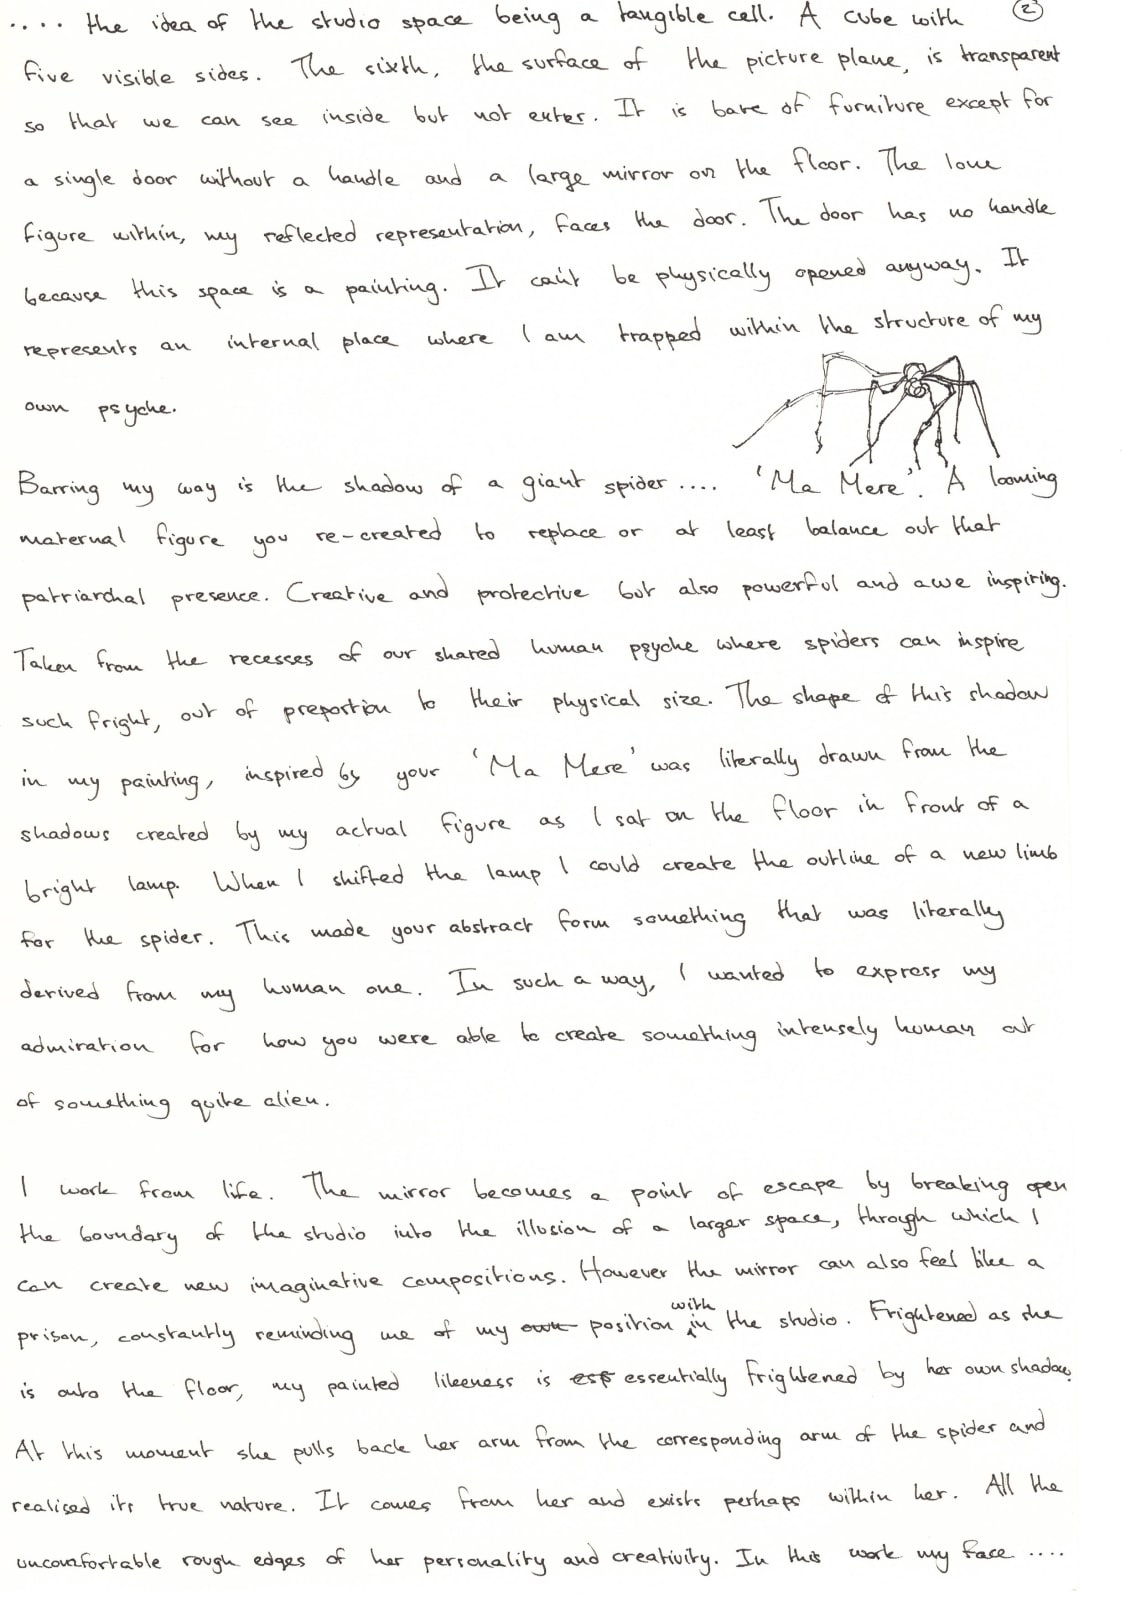 .... the idea of the studio space being a tangible cell. A cube with ②
five visible sides. The sixth, the surface of the picture plane, is transparent
so that we can see inside but not enter. It is bare of furniture except for
a single door without a handle and a large mirror on the floor. The lone
figure within, my reflected representation, faces the door. The door has no handle
because this space is a painting. It can't be physically opened anyway. It
represents an internal place where I am trapped within the structure of my
own psyche.
Barring my way is the shadow of a giant spider .... 'Ma Mere'. A looming
maternal figure you re-created to replace or at least balance out that
patriarchal presence. Creative and protective but also powerful and awe inspiring.
Taken from the recesses of our shared human psyche where spiders can inspire
such fright, out of preportion to their physical size. The shape of this shadow
in my painting, inspired by your 'Ma Mere' was literally drawn from the
shadows created by my actual figure as I sat on the floor in front of a
bright lamp. When I shifted the lamp I could create the outline of a new limb
for the spider. This made your abstract form something that was literally
derived from my human one. In such a way, I wanted to express my
admiration for how you were able to create something intensely human out
of something quite alien.
I work from life. The mirror becomes a point of escape by breaking open
the boundary of the studio into the illusion of a larger space, through which I
can create new imaginative compositions. However the mirror can also feel like a
prison, constantly reminding me of my own position with in the studio. Frightened as she
is onto the floor, my painted likeness is ess essentially frightened by her own shadow.
At this moment she pulls back her arm from the corresponding arm of the spider and
realised its true nature. It comes from her and exists perhaps within her. All the
uncomfortable rough edges of her personality and creativity. In this work my face ....